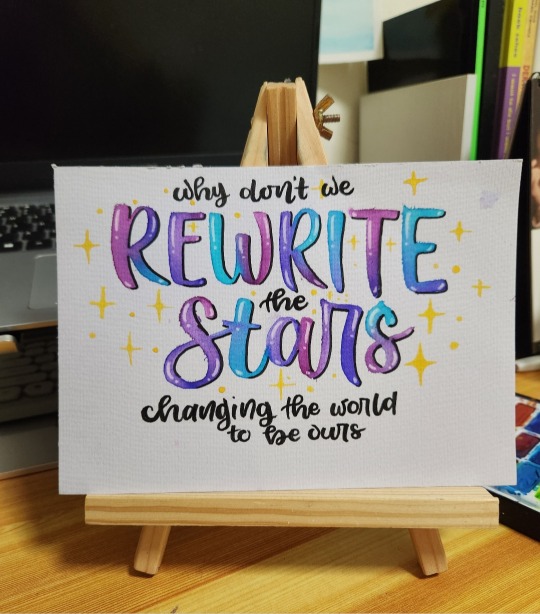 why don't we
REWRITE
the
Stars
changing the world
to be ours